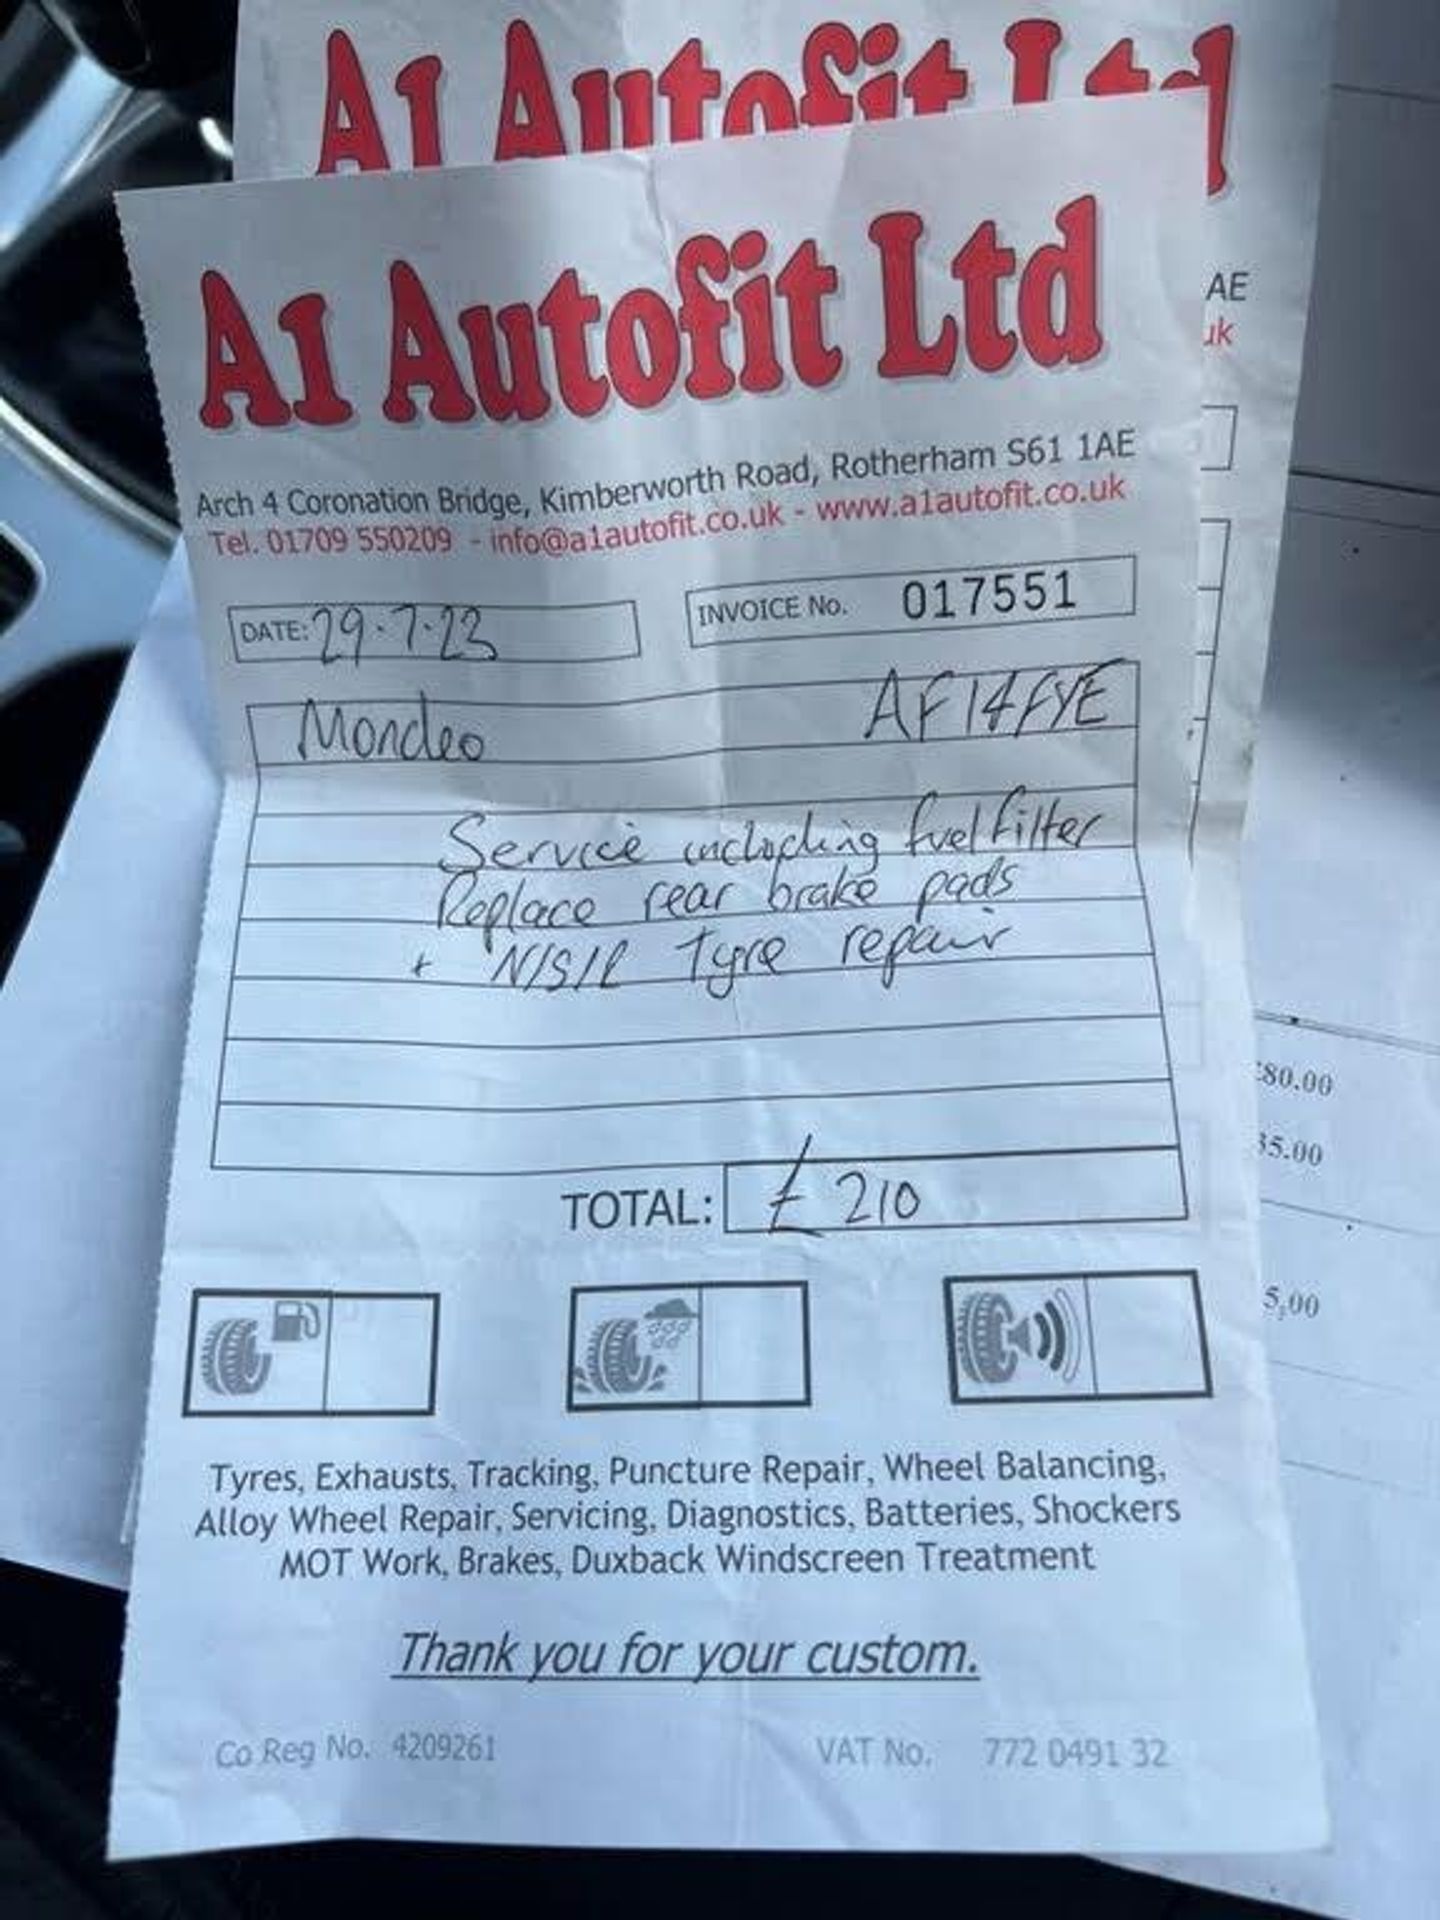 A1 Autofit Ltd
AE
uk
A1 Autofit Ltd
Arch 4 Coronation Bridge, Kimberworth Road, Rotherham S61 1AE
Tel. 01709 550209 - info@a1autofit.co.uk - www.a1autofit.co.uk
DATE: 29.7.23 INVOICE No. 017551
Mondeo AF14FYE
Service including fuel filter
Replace rear brake pads
+ N/S/R Tyre repair
80.00
35.00
TOTAL: £210
5,00
Tyres, Exhausts, Tracking, Puncture Repair, Wheel Balancing,
Alloy Wheel Repair, Servicing, Diagnostics, Batteries, Shockers
MOT Work, Brakes, Duxback Windscreen Treatment
Thank you for your custom.
Co Reg No. 4209261 VAT No. 772 0491 32